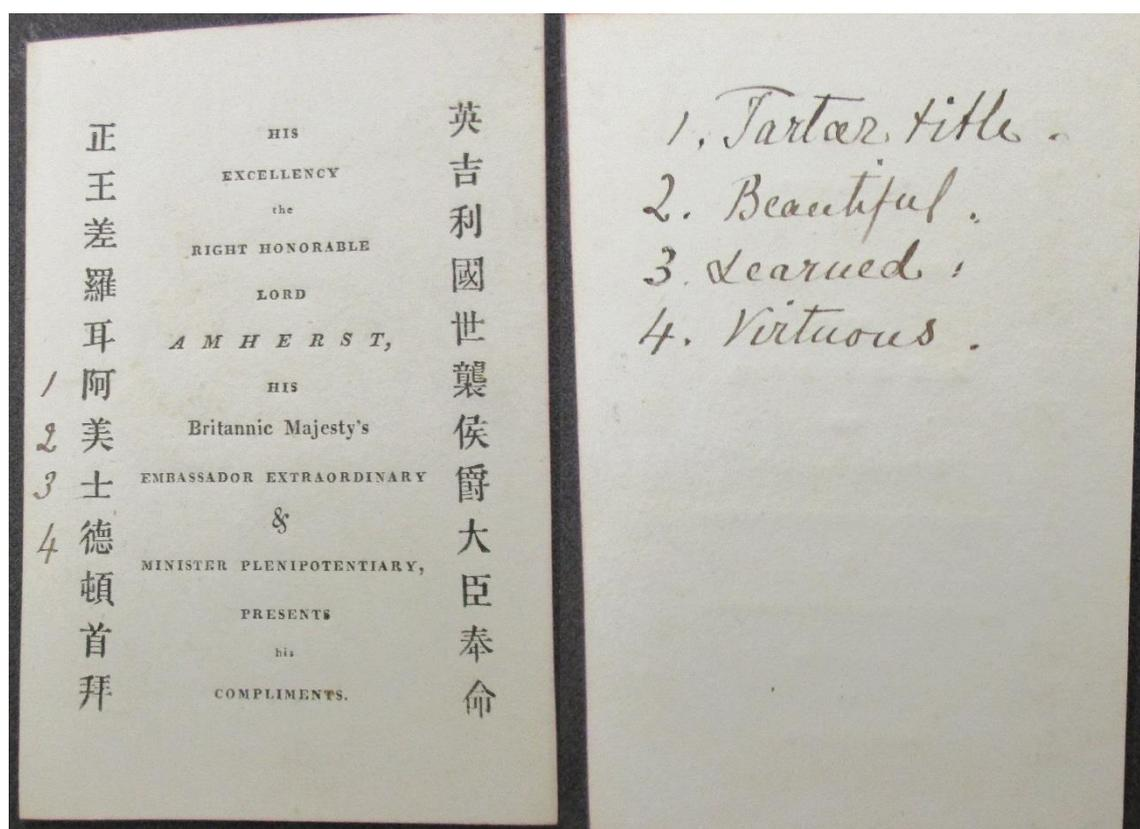 英吉利國世襲侯爵大臣奉命
正王差羅耳阿美士德頓首拜
HIS
EXCELLENCY
the
RIGHT HONORABLE
LORD
AMHERST,
HIS
Britannic Majesty's
EMBASSADOR EXTRAORDINARY
&
MINISTER PLENIPOTENTIARY,
PRESENTS
his
COMPLIMENTS.
1
2
3
4
1. Tartar title.
2. Beautiful.
3. Learned.
4. Virtuous.